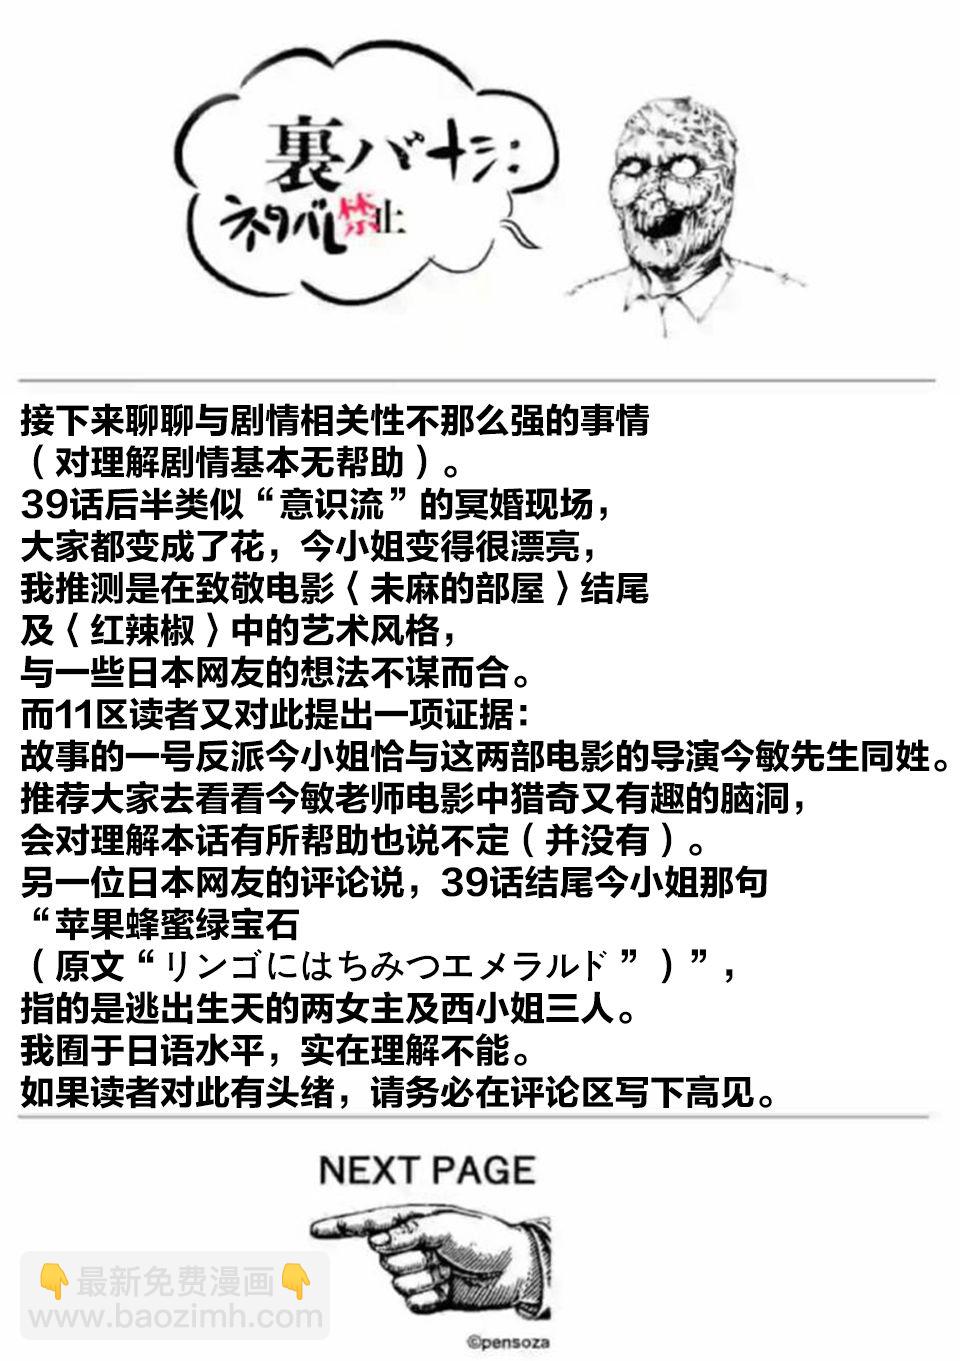 裏バナシ:
ネタバレ禁止
接下来聊聊与剧情相关性不那么强的事情
（对理解剧情基本无帮助）。
39话后半类似“意识流”的冥婚现场，
大家都变成了花，今小姐变得很漂亮，
我推测是在致敬电影〈未麻的部屋〉结尾
及〈红辣椒〉中的艺术风格，
与一些日本网友的想法不谋而合。
而11区读者又对此提出一项证据：
故事的一号反派今小姐恰与这两部电影的导演今敏先生同姓。
推荐大家去看看今敏老师电影中猎奇又有趣的脑洞，
会对理解本话有所帮助也说不定（并没有）。
另一位日本网友的评论说，39话结尾今小姐那句
“苹果蜂蜜绿宝石
（原文“リンゴにはちみつエメラルド”）”，
指的是逃出生天的两女主及西小姐三人。
我囿于日语水平，实在理解不能。
如果读者对此有头绪，请务必在评论区写下高见。
NEXT PAGE
👇最新免费漫画👇
www.baozimh.com
©pensoza